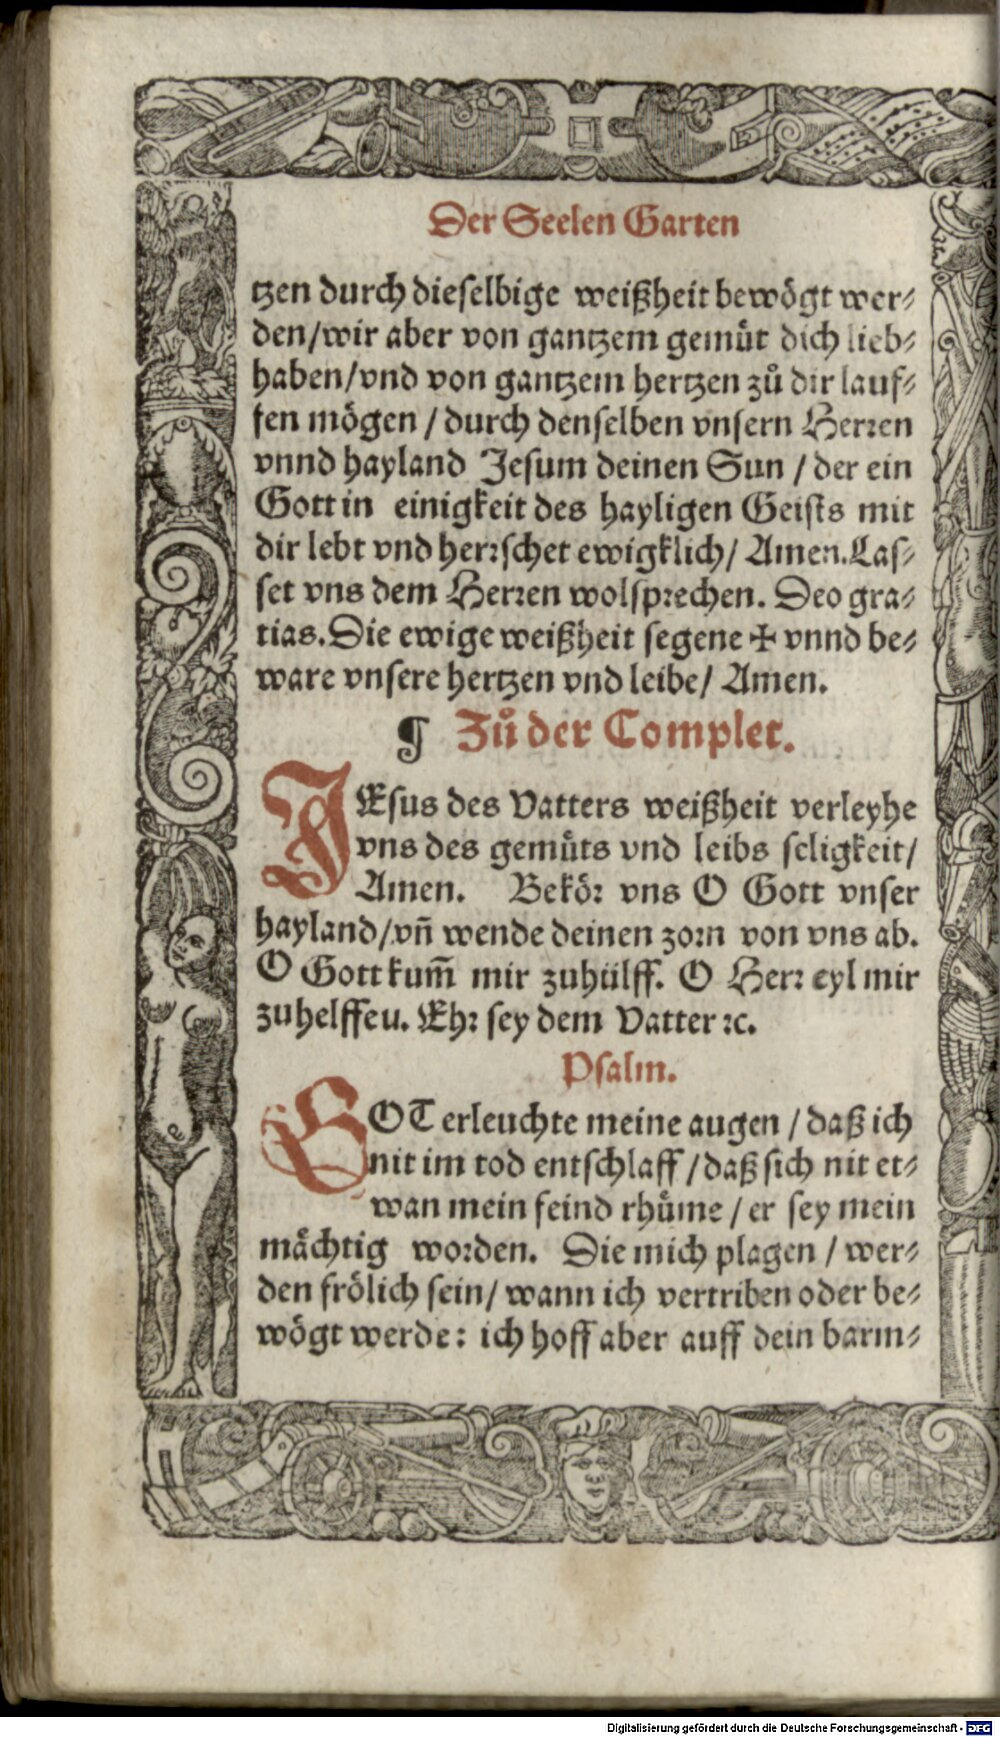 Der Seelen Garten
tzen durch dieselbige weißheit bewögt wer⸗
den/wir aber von gantzem gemuͤt dich lieb⸗
haben/vnd von gantzem hertzen zuͦ dir lauf⸗
fen mögen / durch denselben vnsern Herren
vnnd hayland Jesum deinen Sun / der ein
Gott in einigkeit des hayligen Geists mit
dir lebt vnd herrschet ewigklich/ Amen. Las⸗
set vns dem Herren wolsprechen. Deo gra⸗
tias. Die ewige weißheit segene ✠ vnnd be⸗
ware vnsere hertzen vnd leibe/ Amen.
¶ Zuͦ der Complet.
JEsus des Vatters weißheit verleyhe
vns des gemuͤts vnd leibs seligkeit/
Amen. Bekör vns O Gott vnser
hayland/vn̄ wende deinen zorn von vns ab.
O Gott kum̄ mir zuhülff. O Herr eyl mir
zuhelffeu. Ehr sey dem Vatter ꝛc.
Psalm.
GOT erleuchte meine augen / daß ich
nit im tod entschlaff / daß sich nit et⸗
wan mein feind rhuͤme / er sey mein
maͤchtig worden. Die mich plagen / wer⸗
den frölich sein/ wann ich vertriben oder be⸗
wögt werde: ich hoff aber auff dein barm⸗
Digitalisierung gefördert durch die Deutsche Forschungsgemeinschaft - DFG